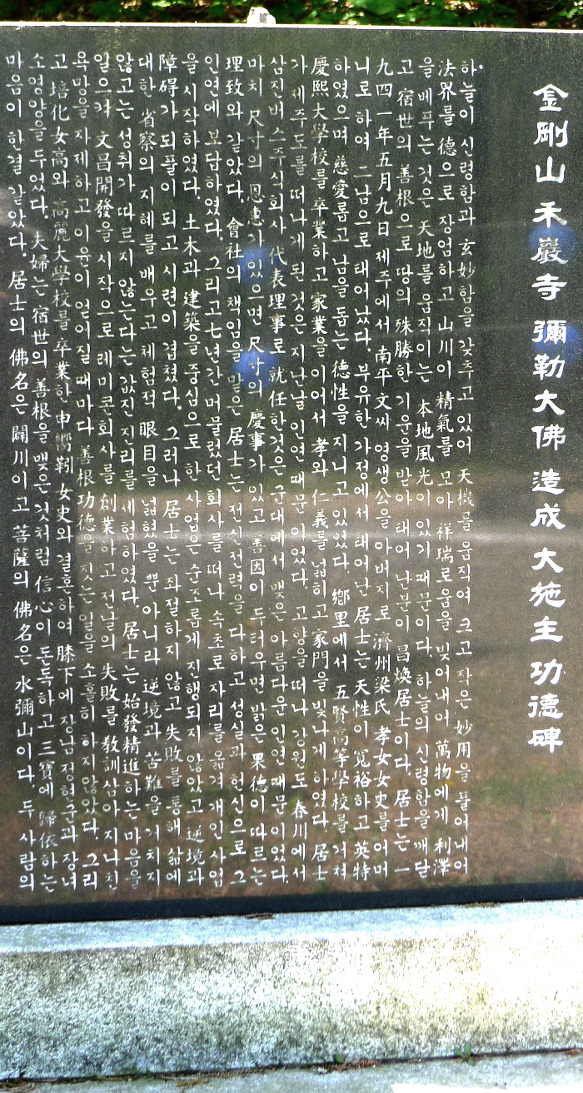 金剛山 禾巖寺 彌勒大佛 造成 大施主 功德碑
하늘이 신령함과 玄妙함을 갖추고 있어 天機를 움직여 크고 작은 妙用을 풀어내어
法界를 德으로 장엄하고 山川이 精氣를 모아 祥瑞로움을 빚어내어 萬物에게 利澤
을 베푸는 것은 天地를 움직이는 本地風光이 있기 때문이다. 하늘의 신령함을 깨닫
고 宿世의 善根으로 땅의 殊勝한 기운을 받아 태어난 분이 昌煥居士이다. 居士는 一
九四一年 五月 九日 제주에서 南平文씨 영생公을 아버지로 濟州梁氏 孝女女史를 어머
니로 하여 二男으로 태어났다. 부유한 가정에서 태어난 居士는 天性이 寬裕하고 英特
하였으며 慈愛롭고 남을 돕는 德性을 지니고 있었다. 鄕里에서 五賢高等學校를 거쳐
慶熙大學校를 卒業하고 家業을 이어서 孝와 仁義를 넓히고 家門을 빛나게 하였다. 居士
가 제주도를 떠나게 된 것은 지난날 인연때문이었다. 고향을 떠나 강원도 春川에서
삼진버스주식회사 代表理事로 就任한것은 군대에서 맺은 아름다운 인연때문이었다.
마치 尺寸의 恩惠가 있으면 尺寸의 慶事가 있고 善因이 두터우면 밝은 果德이 따르는
理致와 같았다. 會社의 책임을 맡은 居士는 전신전력을 다하고 성실과 헌신으로 그
인연에 보답하였다. 그리고 七년간 머물렀던 회사를 떠나 속초로 자리를 옮겨 개인사업
을 시작하였다. 土木과 建築을 중심으로 한 사업은 순조롭게 진행되지 않았고 逆境과
障碍가 되풀이 되고 시련이 겹쳤다. 그러나 居士는 좌절하지 않고 失敗를 통해 삶에
대한 省察의 지혜를 배우고 체험적 眼目을 넓혔을 뿐 아니라 逆境과 苦難을 거치지
않고는 성취가 따르지 않는다는 값진 진리를 체험하였다. 居士는 始發精進하는 마음을
일으켜 文昌開發을 시작으로 레미콘회사를 創業하고 전날의 失敗를 敎訓삼아 지나친
욕망을 자제하고 이윤이 얻어질때마다 善根功德을 짓는 일을 소홀히 하지않았다. 그리
고 培化女高와 高麗大學校를 卒業한 申 女史와 결혼하여 膝下에 장남 정현군과 장녀
소영양을 두었다. 夫婦는 宿世의 善根을 맺은것처럼 信心이 돈독하고 三寶에 歸依하는
마음이 한결 같았다. 居士의 佛名은 闢川이고 菩薩의 佛名은 水彌山이다. 두 사람의